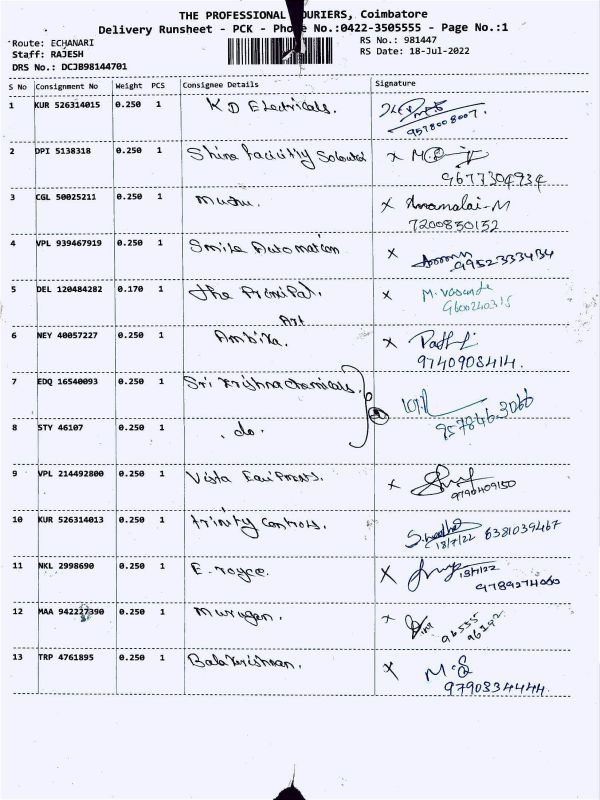 THE PROFESSIONAL COURIERS, Coimbatore
Delivery Runsheet - PCK - Phone No.:0422-3505555 - Page No.:1
Route: ECHANARI RS No.: 981447
Staff: RAJESH RS Date: 18-Jul-2022
DRS No.: DCJB98144701
S No Consignment No Weight PCS Consignee Details Signature
1 KUR 526314015 0.250 1 K D Electricals.
9578008007.
2 DPI 5138318 0.250 1 Shine facility X
9677304934
3 CGL 50025211 0.250 1 Muthu. X Annamalai-M
7200850152
4 VPL 939467919 0.250 1 Smile Automation X
9952333434
5 DEL 120484282 0.170 1 the Principal. X M. Vasantha
9600240315
Art
6 NEY 40057227 0.250 1 Ambika. X
9740908414.
7 EDQ 16540093 0.250 1 Sri Krishna chemicals.
9578463066
8 STY 46107 0.250 1 . do .
9 VPL 214492800 0.250 1 Vista Equipments. X
9790409150
10 KUR 526314013 0.250 1 trinity controls.
18/7/22 6381039467
11 NKL 2998690 0.250 1 E-royce. X 18/7/22
9789274060
12 MAA 942227390 0.250 1 Murugan. X
96555
96192
13 TRP 4761895 0.250 1 Bala Krishnan. X M.S
9790834444.